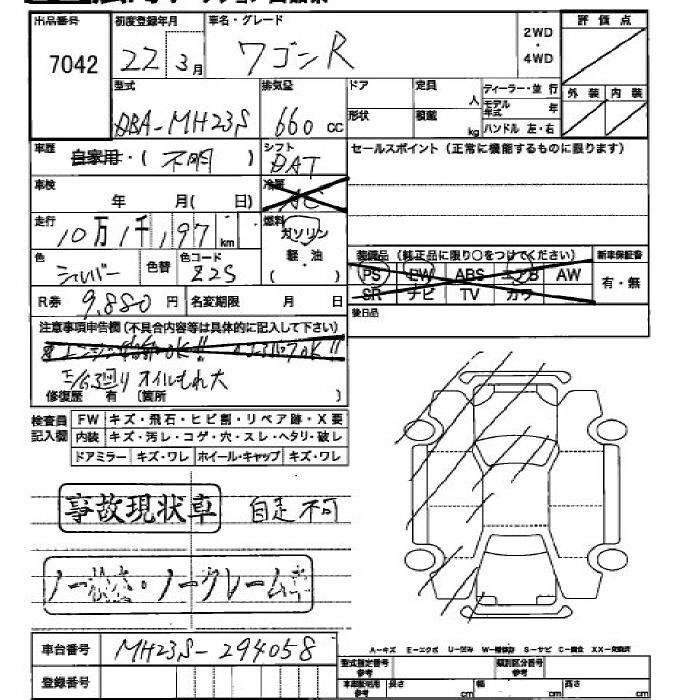 出品番号 初度登録年月 車名・グレード 2WD ・ 4WD 評価点
7042 22 3月 ワゴンR
型式 排気量 ドア 定員 人 ディーラー・並 行 外装 内装
DBA-MH23S 660cc 形状 積載 kg モデル年式 年 ハンドル 左・右
車歴 自家用・(不明) シフト DAT セールスポイント(正常に機能するものに限ります)
車検 年 月( 日) 冷房 AC
走行 10万1千197km 燃料 ガソリン 軽・油 ( )
色 シルバー 色替 色コード Z2S
装備品(純正品に限り○をつけてください) 新車保証書
PS PW ABS エアB AW 有・無
SR ナビ TV カワ
R券 9,880円 名変期限 月 日 後日品
注意事項申告欄(不具合内容等は具体的に記入して下さい)
オイルもれ大
修復歴 有 〔箇所 〕
検査員記入欄 FW キズ・飛石・ヒビ割・リペア跡・X要
内装 キズ・汚レ・コゲ・穴・スレ・ヘタリ・破レ
ドアミラー キズ・ワレ ホイール・キャップ キズ・ワレ
事故現状車 自走不可
ノークレーム
車台番号 MH23S-294058
A-キズ E-エクボ U-凹み W-補修跡 S-サビ C-腐食 XX-交換済
登録番号 型式指定番号 参考 類別区分番号 参考
車車証明用 参考 長さ cm 幅 cm 高さ cm